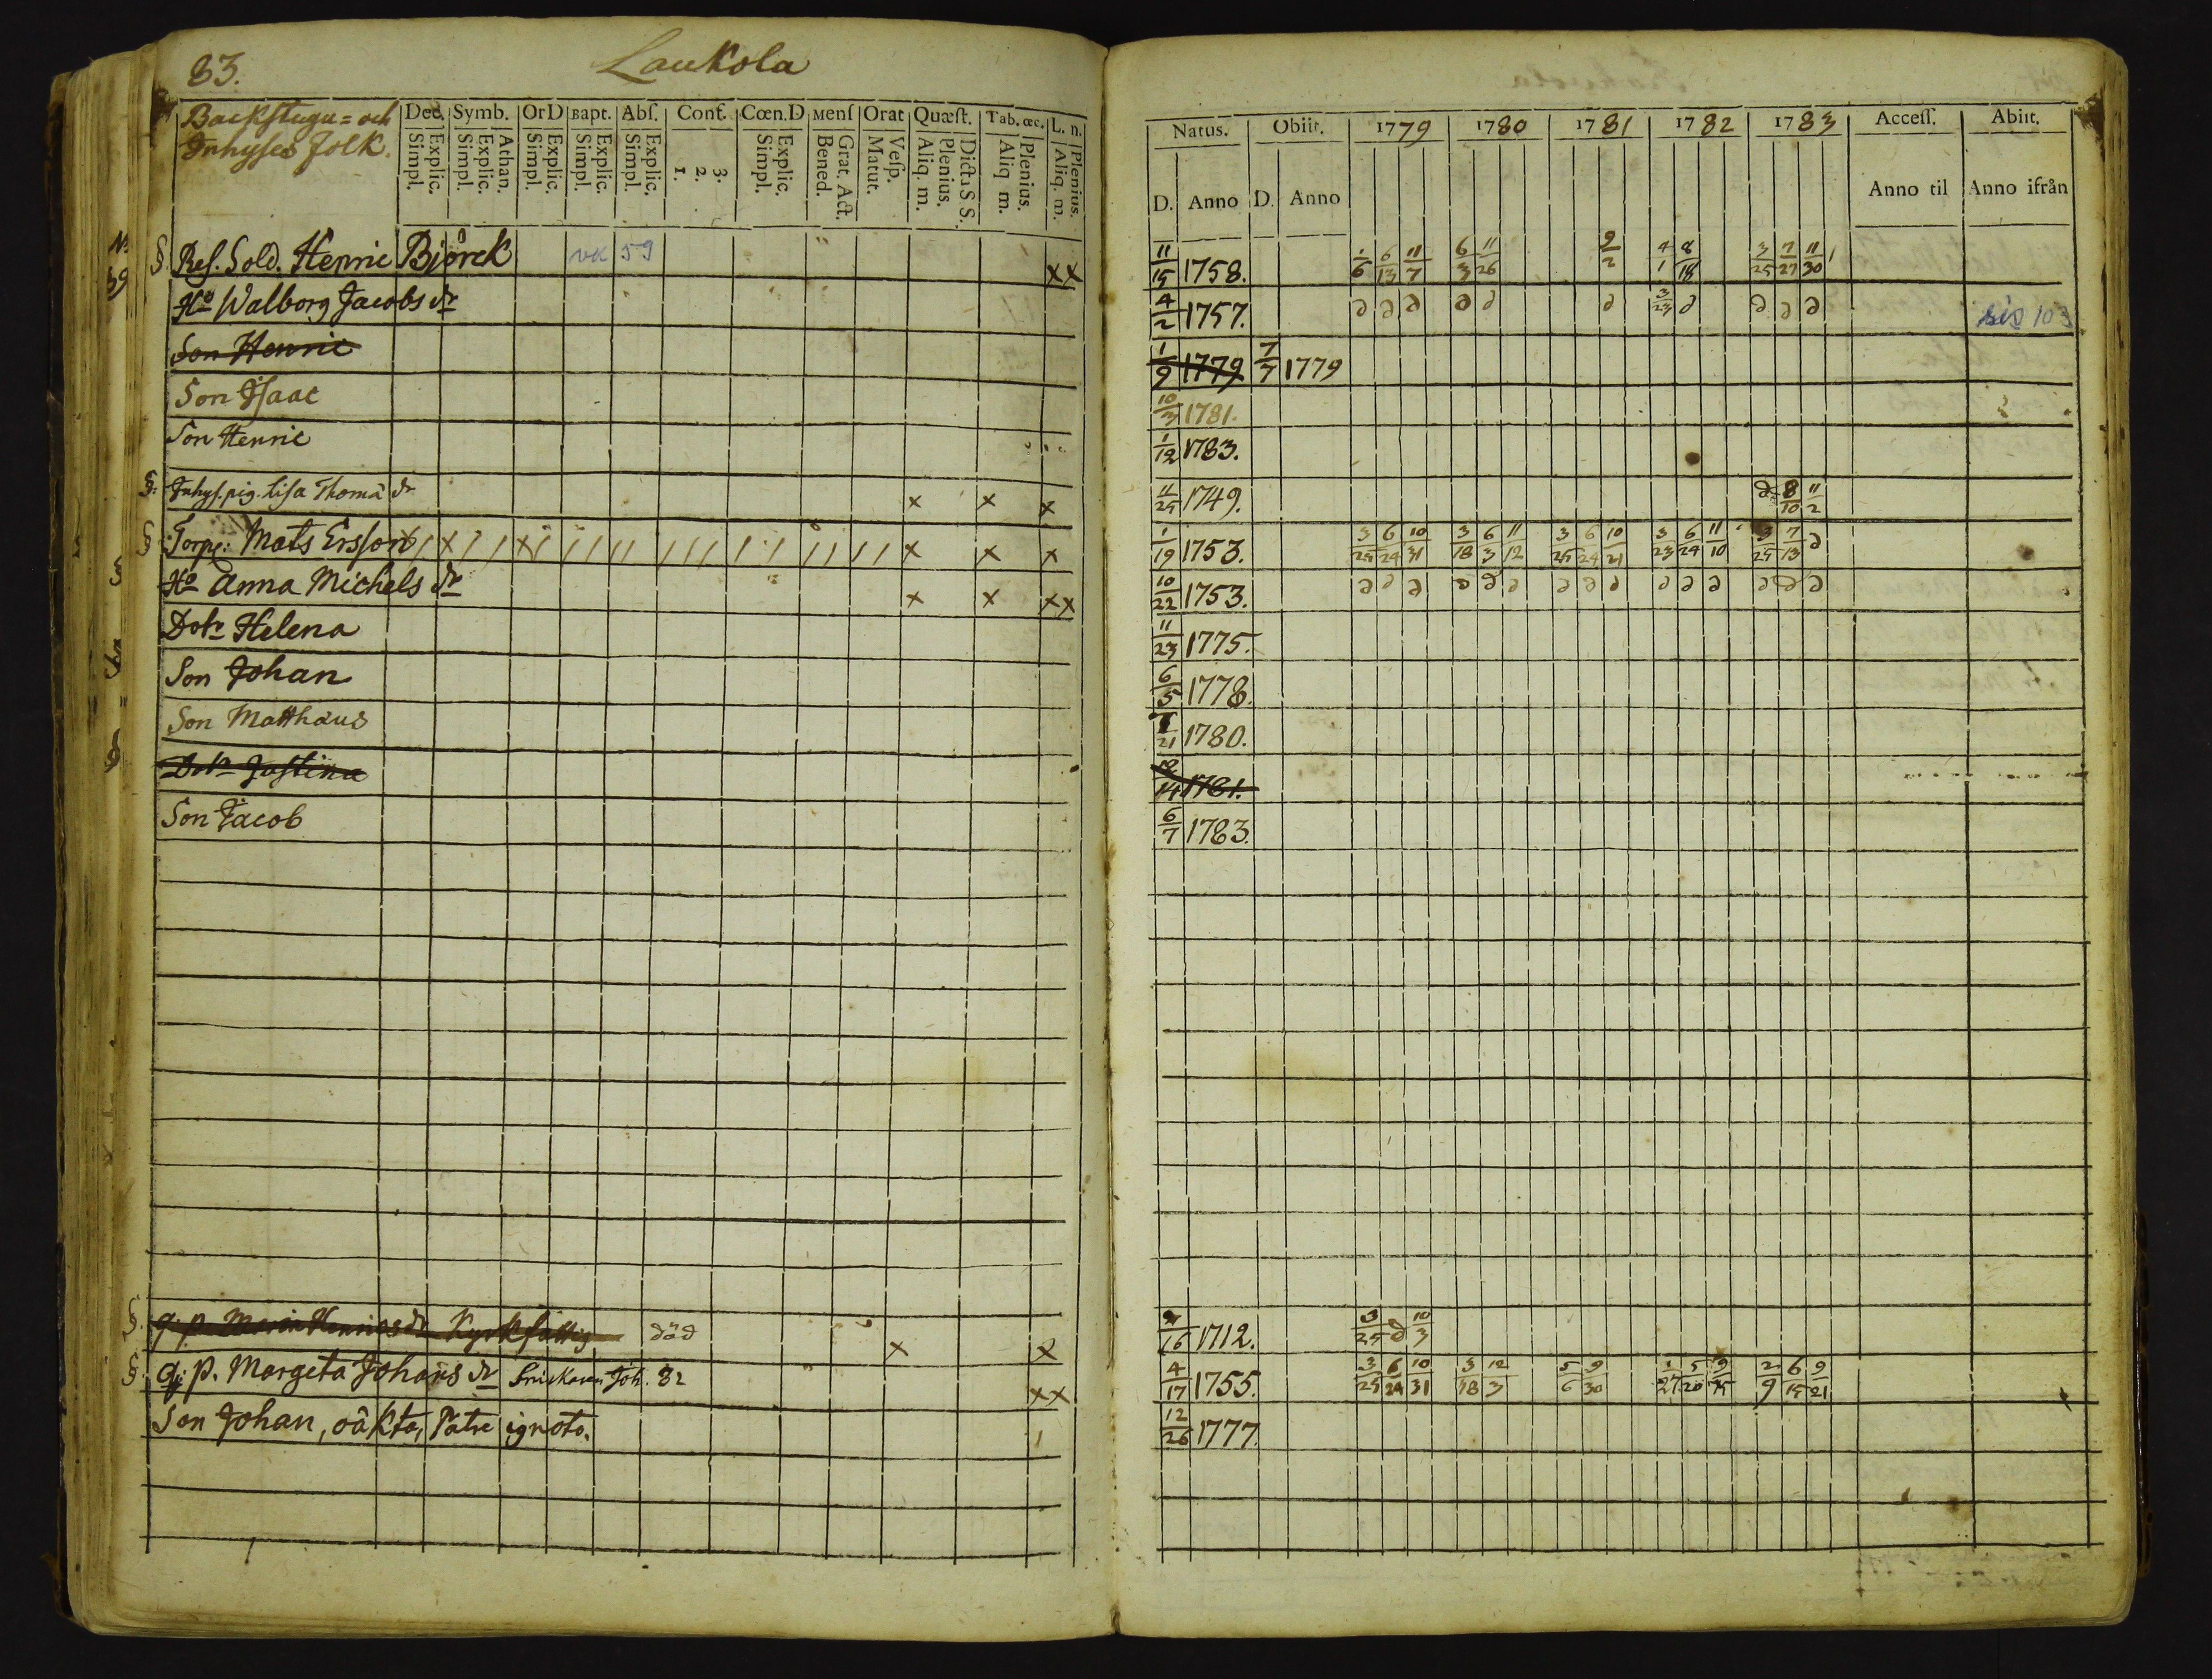 83. Laukola
Backstugu= och
Inhyses Folk.
Dec. Symb. OrD Bapt. Abs. Conf. Cœn.D Mens Orat Quæst. Tab. œc. L. n.
Explic. Simpl. Athan. Explic. Simpl. Explic. Simpl. Explic. Simpl. Explic. Simpl. 3. 2. 1. Explic. Simpl. Grat. Act. Bened. Vesp. Matut. Dicta S S. Plenius. Aliq. m. Plenius. Aliq m. Plenius. Aliq. m.
Natus. Obiit. 1779 1780 1781 1782 1783 Access. Abiit.
D. Anno D. Anno Anno til Anno ifrån
No 59 § Res. Sold. Henric Björck vk 59 xx 11/15 1758. 1/6 6/13 11/7 6/3 11/26 9/2 4/1 8/18 3/25 7/27 11/30
Ho Walborg Jacobs dr 4/2 1757. 3/23 sis 103
Son Henric 1/9 1779 7/7 1779
Son Isaac 10/3 1781.
Son Henric 1/12 1783.
§: Inhys. pig. Lisa Thomä dr x x x 11/25 1749. 8/10 11/2
§ Torp: Mats Ersson x x x 1/19 1753. 3/25 6/24 10/31 3/18 6/3 11/12 3/25 6/24 10/21 3/23 6/24 11/10 3/25 7/13
Ho Anna Michels dr x x xx 10/22 1753.
Dotr Helena 11/23 1775.
Son Johan 6/5 1778.
Son Matthæus 21 1780.
Dotr Justina 14 1781.
Son Jacob 6/7 1783.
§. q. p. Maria Henrics dr Kyrkfattig död x x 16 1712. 3/25 10/3
§. q: p. Margeta Johans dr Joh. 82 xx 4/17 1755. 3/25 6/24 10/31 3/18 12/3 5/6 9/30 1/27 5/20 9/15 2/9 6/15 9/21
Son Johan, oäkta, Patre ignoto. 1 12/26 1777.